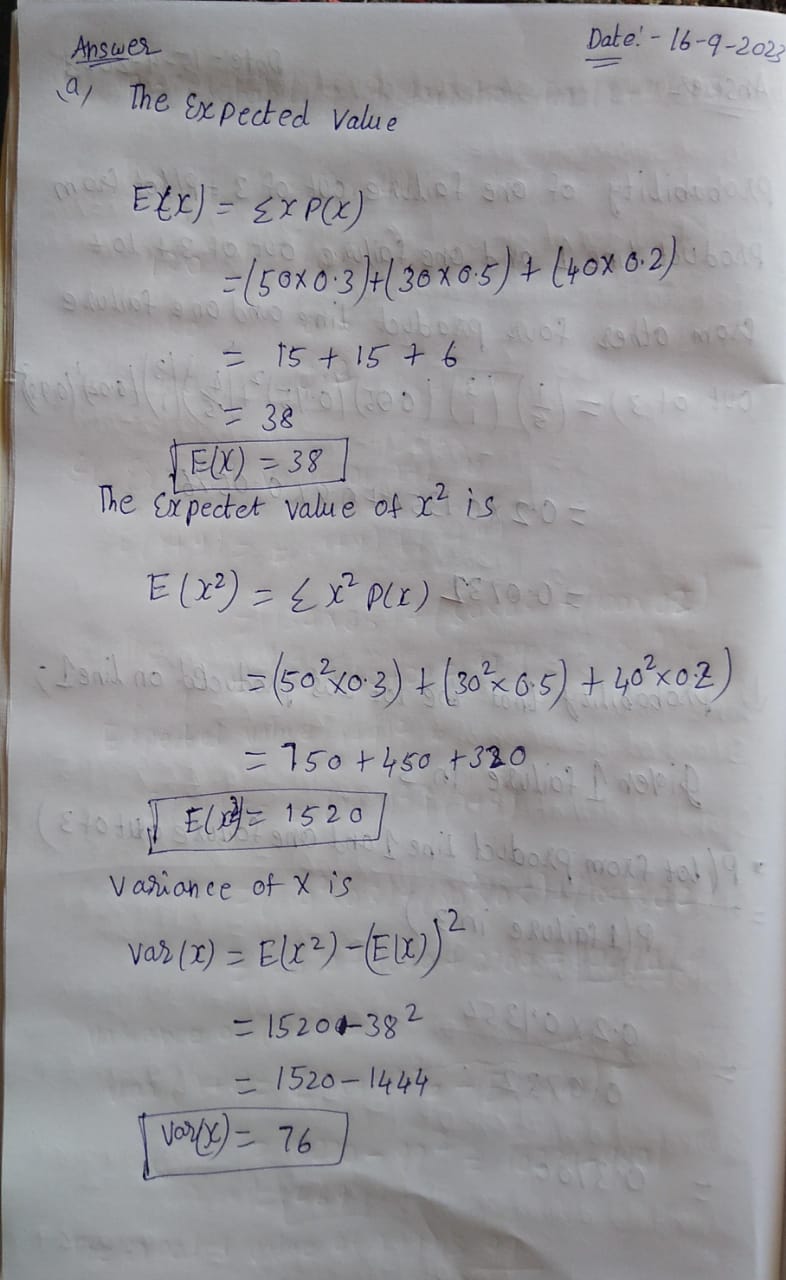 Answer
Date:- 16-9-2023
a, The Expected Value
E(x) = Σ x P(x)
= (50x0.3)+(30x0.5) + (40x0.2)
= 15 + 15 + 6
= 38
E(X) = 38
The Expectet value of x² is
E (x²) = Σ x² P(x)
= (50²x0.3) + (30²x0.5) + 40²x0.2)
= 750 + 450 + 320
E(x²) = 1520
Variance of X is
var (x) = E(x²) - (E(x))²
= 1520 - 38²
= 1520 - 1444
Var(x) = 76